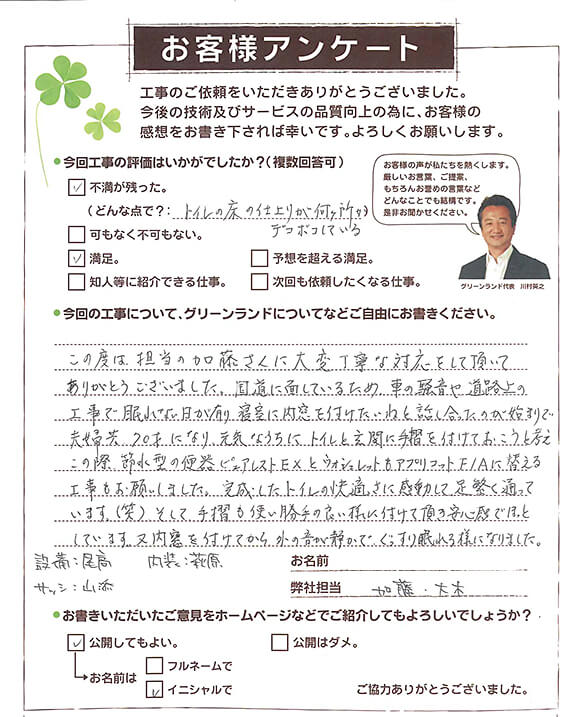 お客様アンケート
工事のご依頼をいただきありがとうございました。
今後の技術及びサービスの品質向上の為に、お客様の
感想をお書き下されば幸いです。よろしくお願いします。
●今回工事の評価はいかがでしたか？(複数回答可)
✓ 不満が残った。
(どんな点で？: トイレの床の仕上りが何ヶ所か
デコボコしている
可もなく不可もない。
✓ 満足。
予想を超える満足。
知人等に紹介できる仕事。
次回も依頼したくなる仕事。
お客様の声が私たちを熱くします。
厳しいお言葉、ご提案、
もちろんお誉めの言葉など
どんなことでも結構です。
是非お聞かせください。
グリーンランド代表 川村英之
●今回の工事について、グリーンランドについてなどご自由にお書きください。
この度は、担当の加藤さんに大変丁寧な対応をして頂いて
ありがとうございました。国道に面しているため、車の騒音や道路上の
工事で眠れない日が有り、寝室に内窓を付けたいねと話し合ったのが始まりで
夫婦共、70才になり、元気なうちに、トイレと玄関に手摺を付けておこうと考え
この際、節水型の便器ピュアレストEXとウォシュレットもアプリコットF1Aに替える
工事もお願いしました。完成したトイレの快適さに感動して足繁く通って
います。(笑) そして、手摺も使い勝手の良い様に付けて頂き安心感でほっと
しています。又内窓を付けてから、外の音が静かで、ぐっすり眠れる様になりました。
設備:尾高 内装:萩原
サッシ:山添
お名前
弊社担当 加藤・大木
●お書きいただいたご意見をホームページなどでご紹介してもよろしいでしょうか？
✓ 公開してもよい。
公開はダメ。
お名前は
フルネームで
✓ イニシャルで
ご協力ありがとうございました。